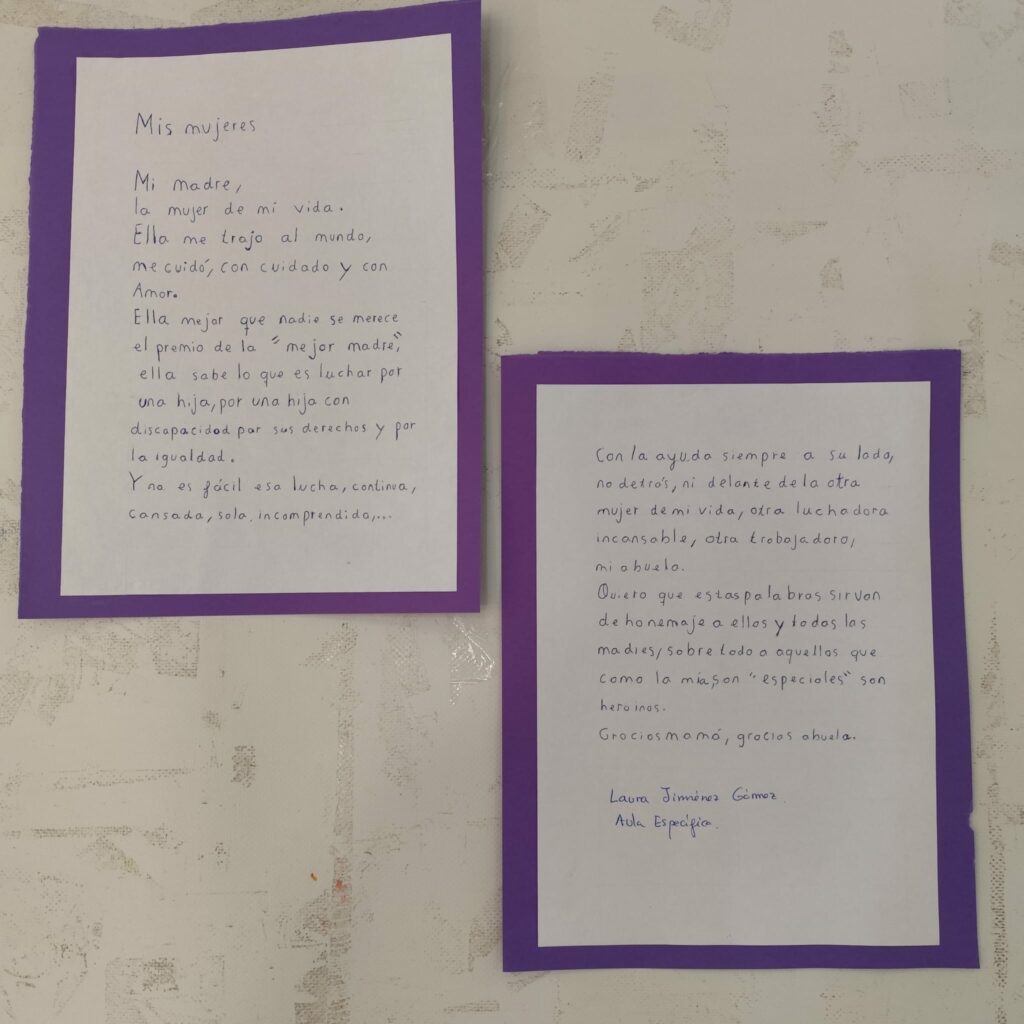 Mis mujeres
Mi madre,
la mujer de mi vida.
Ella me trajo al mundo,
me cuidó, con cuidado y con
Amor.
Ella mejor que nadie se merece
el premio de la "mejor madre",
ella sabe lo que es luchar por
una hija, por una hija con
discapacidad por sus derechos y por
la igualdad.
Y no es fácil esa lucha, continua,
cansada, sola, incomprendida,...
Con la ayuda siempre a su lado,
no detrás, ni delante de la otra
mujer de mi vida, otra luchadora
incansable, otra trabajadora,
mi abuela.
Quiero que estas palabras sirvan
de honemaje a ellas y todas las
madres, sobre todo a aquellas que
como la mía, son "especiales" son
heroinas.
Gracias mamá, gracias abuela.
Laura Jiménez Gómez.
Aula Específica.